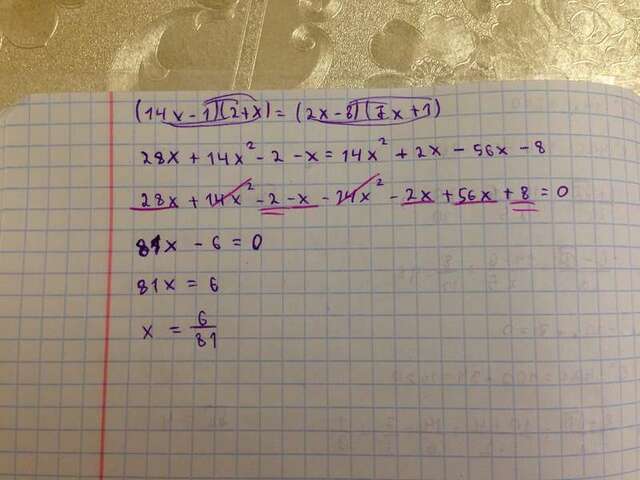 (14x-1)(2+x)=(2x-8)(7x+1)
28x+14x²-2-x=14x²+2x-56x-8
28x+14x²-2-x-14x²-2x+56x+8=0
81x-6=0
81x=6
x=6/81